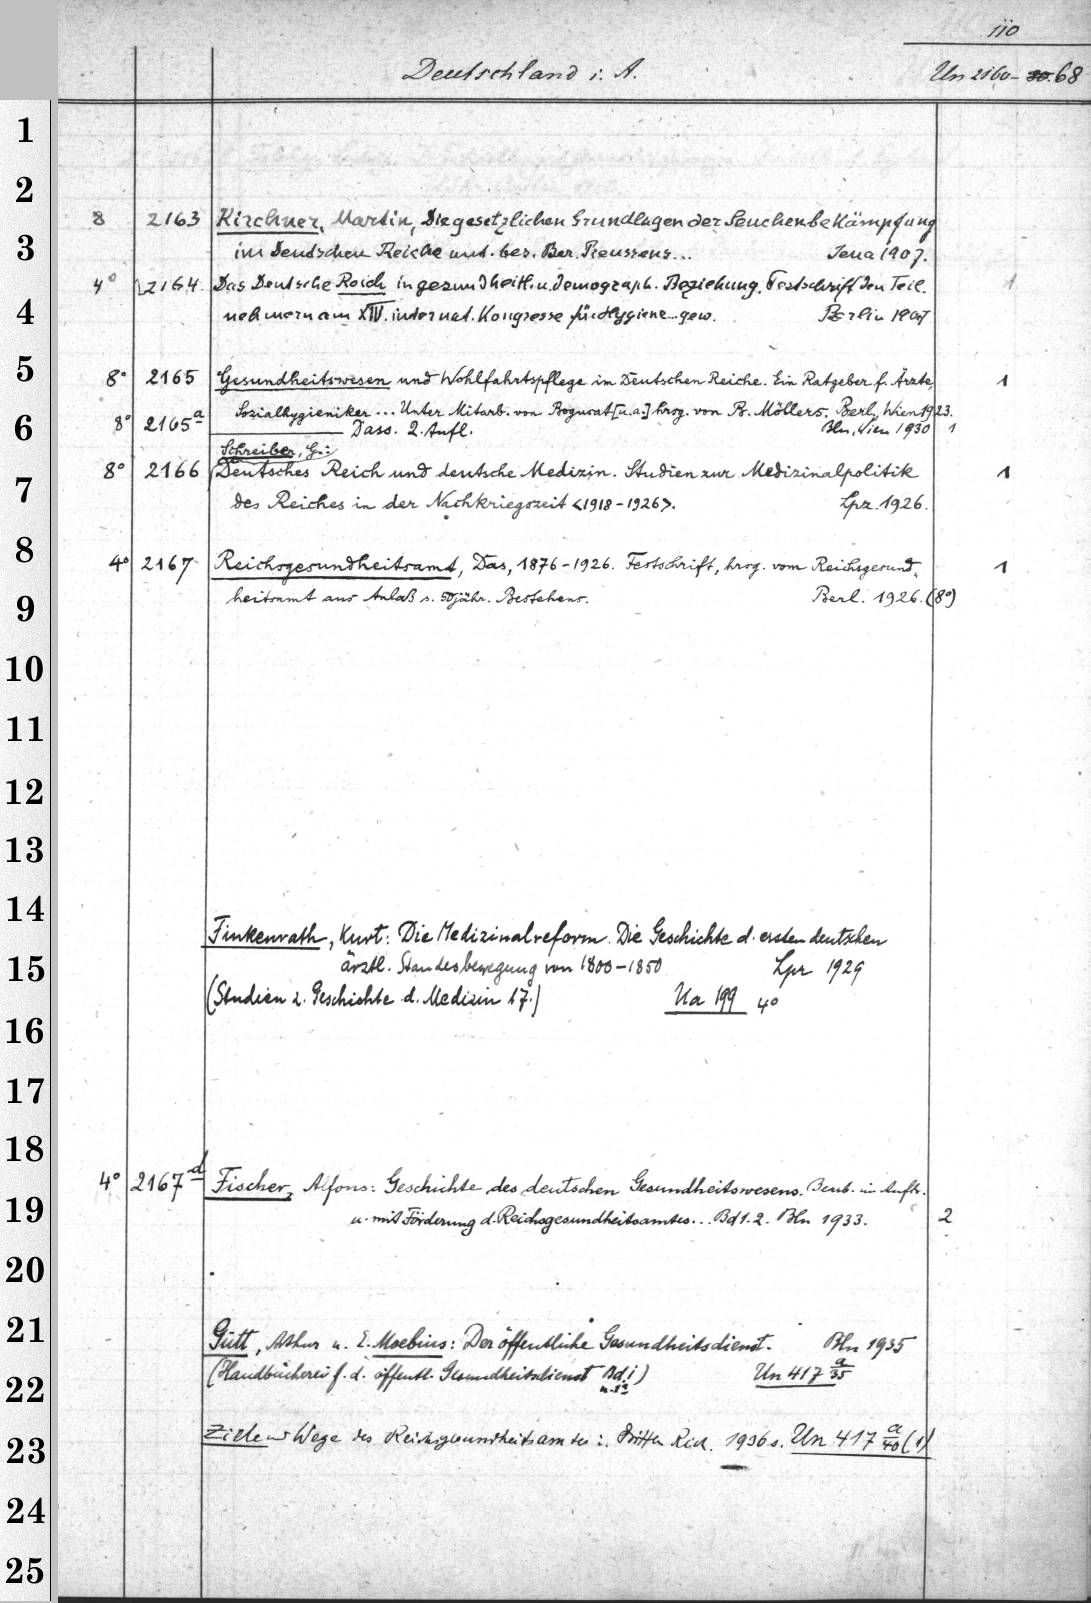 110
Deutschland i. A. Un 2160-30.68
1
2
8 2163 Kirchner, Martin, Die gesetzlichen Grundlagen der Seuchenbekämpfung
3
im Deutschen Reiche unt. bes. Ber. Preussens... Jena 1907.
4° 2164. Das Deutsche Reich in gesundheitl. u. demograph. Beziehung. Festschrift den Teil. 1
4
nehmern am XIV. internat. Kongresse für Hygiene... gew. Berlin 1907
5
8° 2165 Gesundheitswesen und Wohlfahrtspflege im Deutschen Reiche. Ein Ratgeber f. Ärzte, 1
Sozialhygieniker ... Unter Mitarb. von Bogusat [u.a.] hrsg. von B. Möllers. Berl., Wien 1923.
6
8° 2165a Dass. 2. Aufl. Bln, Wien 1930 1
Schreiber, G.:
8° 2166 Deutsches Reich und deutsche Medizin. Studien zur Medizinalpolitik 1
7
des Reiches in der Nachkriegszeit <1918-1926>. Lpz. 1926.
8
4° 2167 Reichsgesundheitsamt, Das, 1876-1926. Festschrift, hrsg. vom Reichsgesund- 1
9
heitsamt aus Anlaß s. 50jähr. Bestehens. Berl. 1926. (8°)
10
11
12
13
14
Finkenrath, Kurt: Die Medizinalreform. Die Geschichte d. ersten deutschen
15
ärztl. Standesbewegung von 1800-1850 Lpz 1929
(Studien z. Geschichte d. Medizin 17.) Ua 199 4°
16
17
18
4° 2167d Fischer, Alfons: Geschichte des deutschen Gesundheitswesens. Bearb. im Auftr.
19
u. mit Förderung d. Reichsgesundheitsamtes... Bd 1.2. Bln 1933. 2
20
21
Gütt, Arthur u. E. Moebius: Der öffentliche Gesundheitsdienst. Bln 1935
22
(Handbücherei f. d. öffentl. Gesundheitsdienst Bd 1) Un 417 a/35
23
Ziele u Wege des Reichsgesundheitsamtes i. Dritten Reich. 1936 s. Un 417 a/40 (1)
24
25